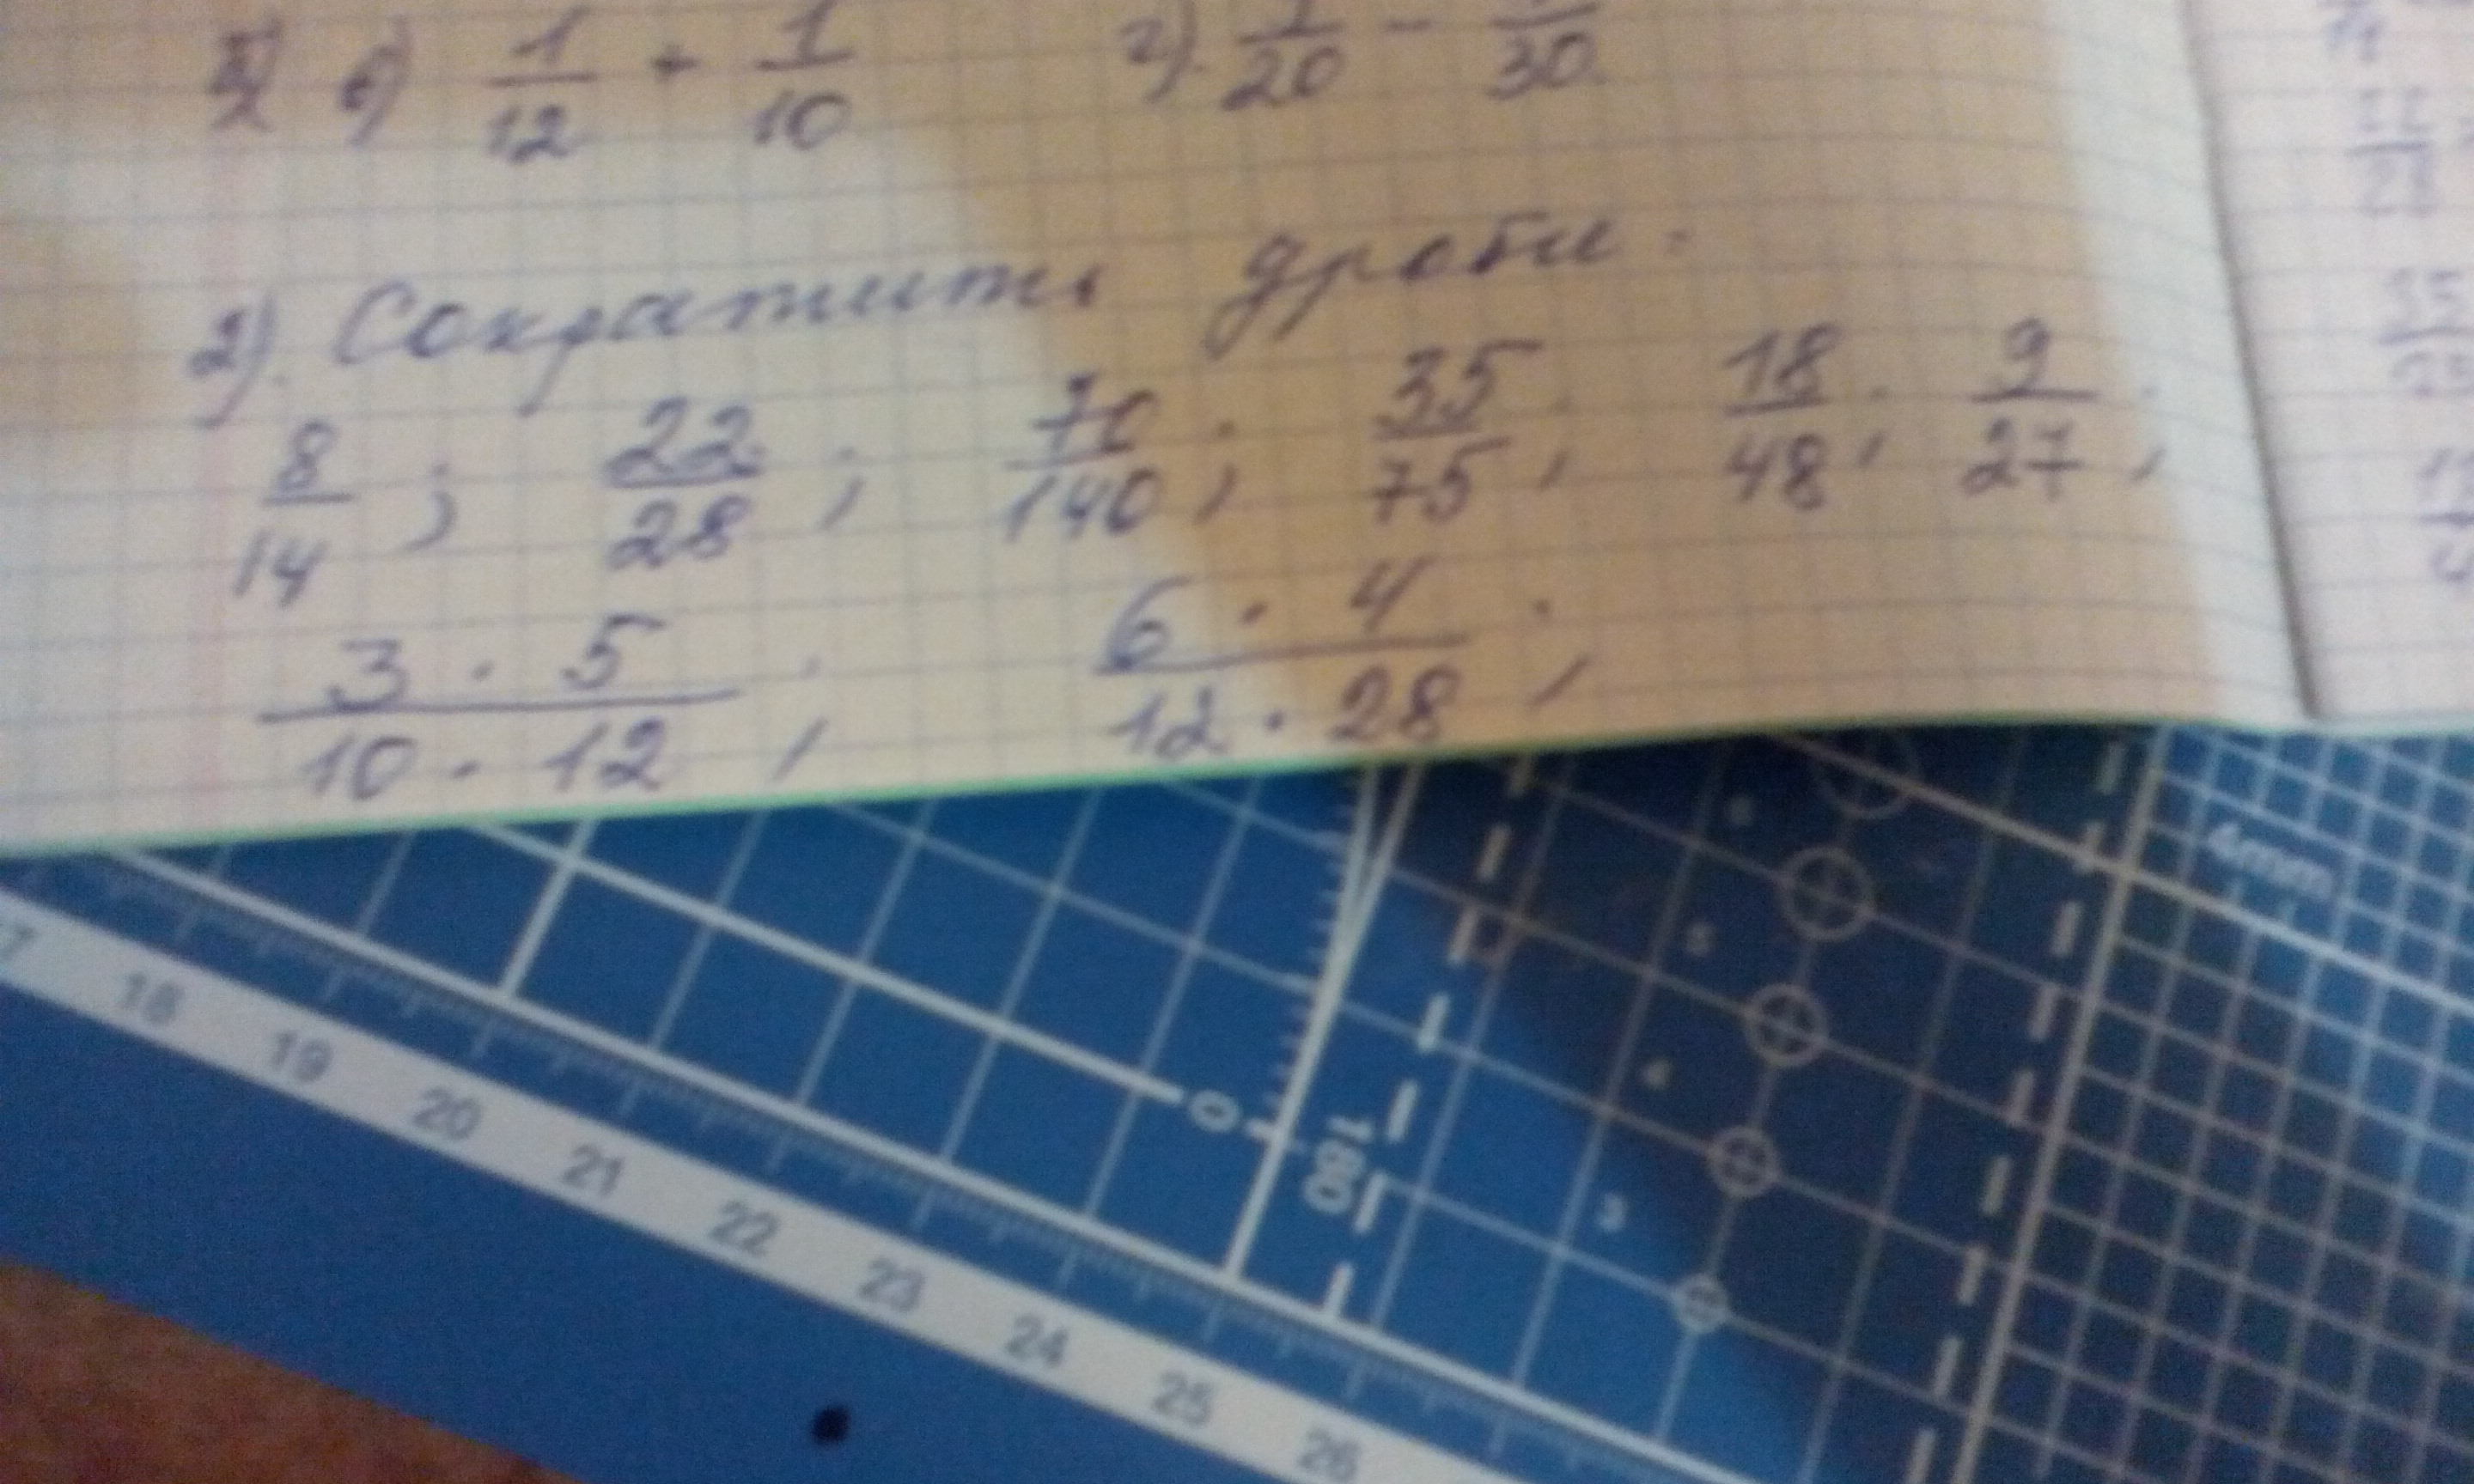 в) 1/12 + 1/10 г). 1/20 - /30
2). Сократить дроби:
8/14; 22/28; 70/140; 35/75; 18/48; 9/27;
3 · 5/10 · 12; 6 · 4/12 · 28;
4mm
6
5
4
3
0 180
18 19 20 21 22 23 24 25 26